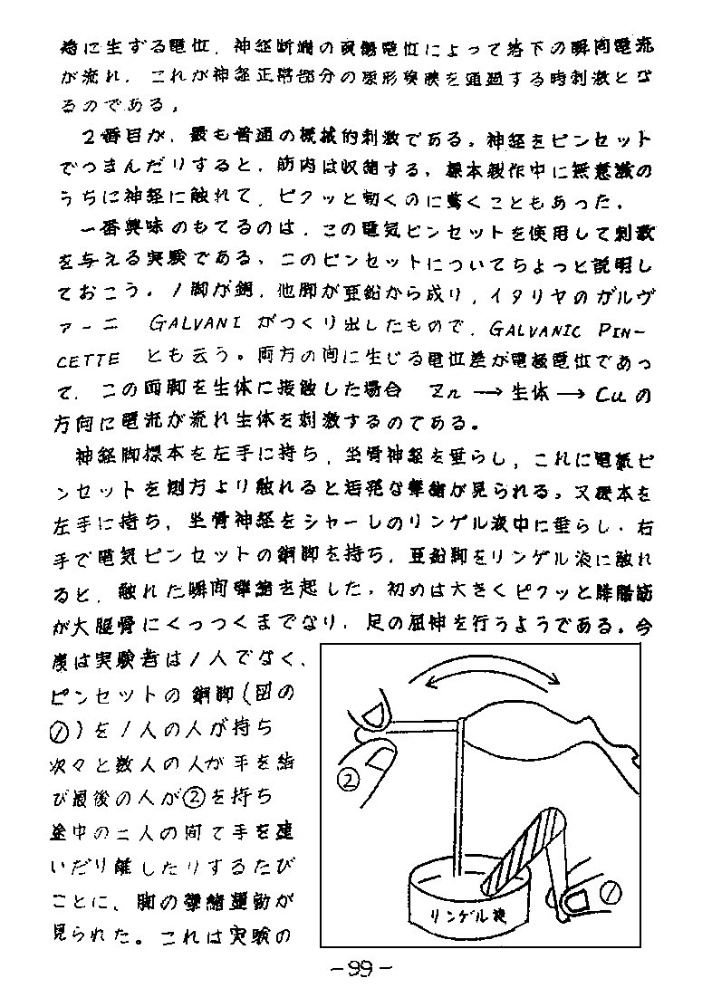 時に生ずる電位、神経断端の負傷電位によって落下の瞬間電流
が流れ、これが神経正常部分の原形質膜を通過する時刺激とな
るのである。
2番目が、最も普通の機械的刺激である。神経をピンセット
でつまんだりすると、筋肉は収縮する。標本製作中に無意識の
うちに神経に触れて、ピクッと動くのに驚くこともあった。
一番興味のもてるのは、この電気ピンセットを使用して刺激
を与える実験である。このピンセットについてちょっと説明し
ておこう。1脚が銅、他脚が亜鉛から成り、イタリヤのガルヴ
ァーニ GALVANI がつくり出したもので、GALVANIC PIN-
CETTE とも云う。両方の間に生じる電位差が電極電位であっ
て、この両脚を生体に接触した場合 Zn → 生体 → Cu の
方向に電流が流れ生体を刺激するのてある。
神経脚標本を左手に持ち、坐骨神経を垂らし、これに電気ピ
ンセットを側方より触れると活発な攣縮が見られる。又標本を
左手に持ち、坐骨神経をシャーレのリンゲル液中に垂らし、右
手で電気ピンセットの銅脚を持ち、亜鉛脚をリンゲル液に触れ
ると、触れた瞬間攣縮を起した。初めは大きくピクッと腓腸筋
が大腿骨にくっつくまでなり、足の屈伸を行うようである。今
度は実験者は1人でなく、
ピンセットの銅脚(図の
①)を1人の人が持ち
次々と数人の人が手を結
び最後の人が②を持ち
途中の二人の間で手を繋
いだり離したりするたび
ごとに、脚の攣縮運動が
見られた。これは実験の
②
①
リンゲル液
-99-